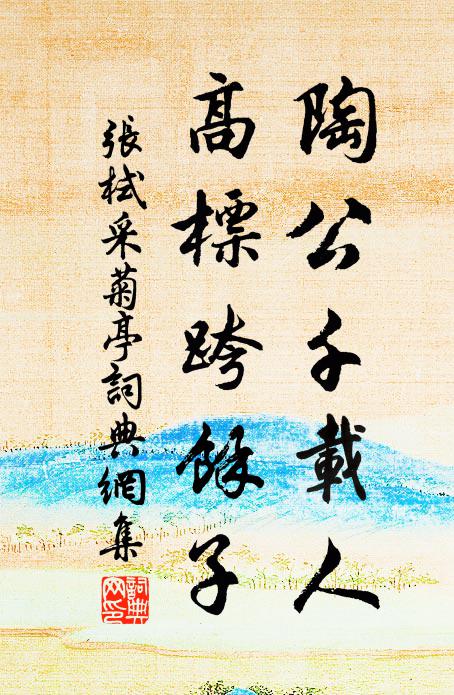 陶公千載人
高標跨餘子
張栻采菊亭詞典網集